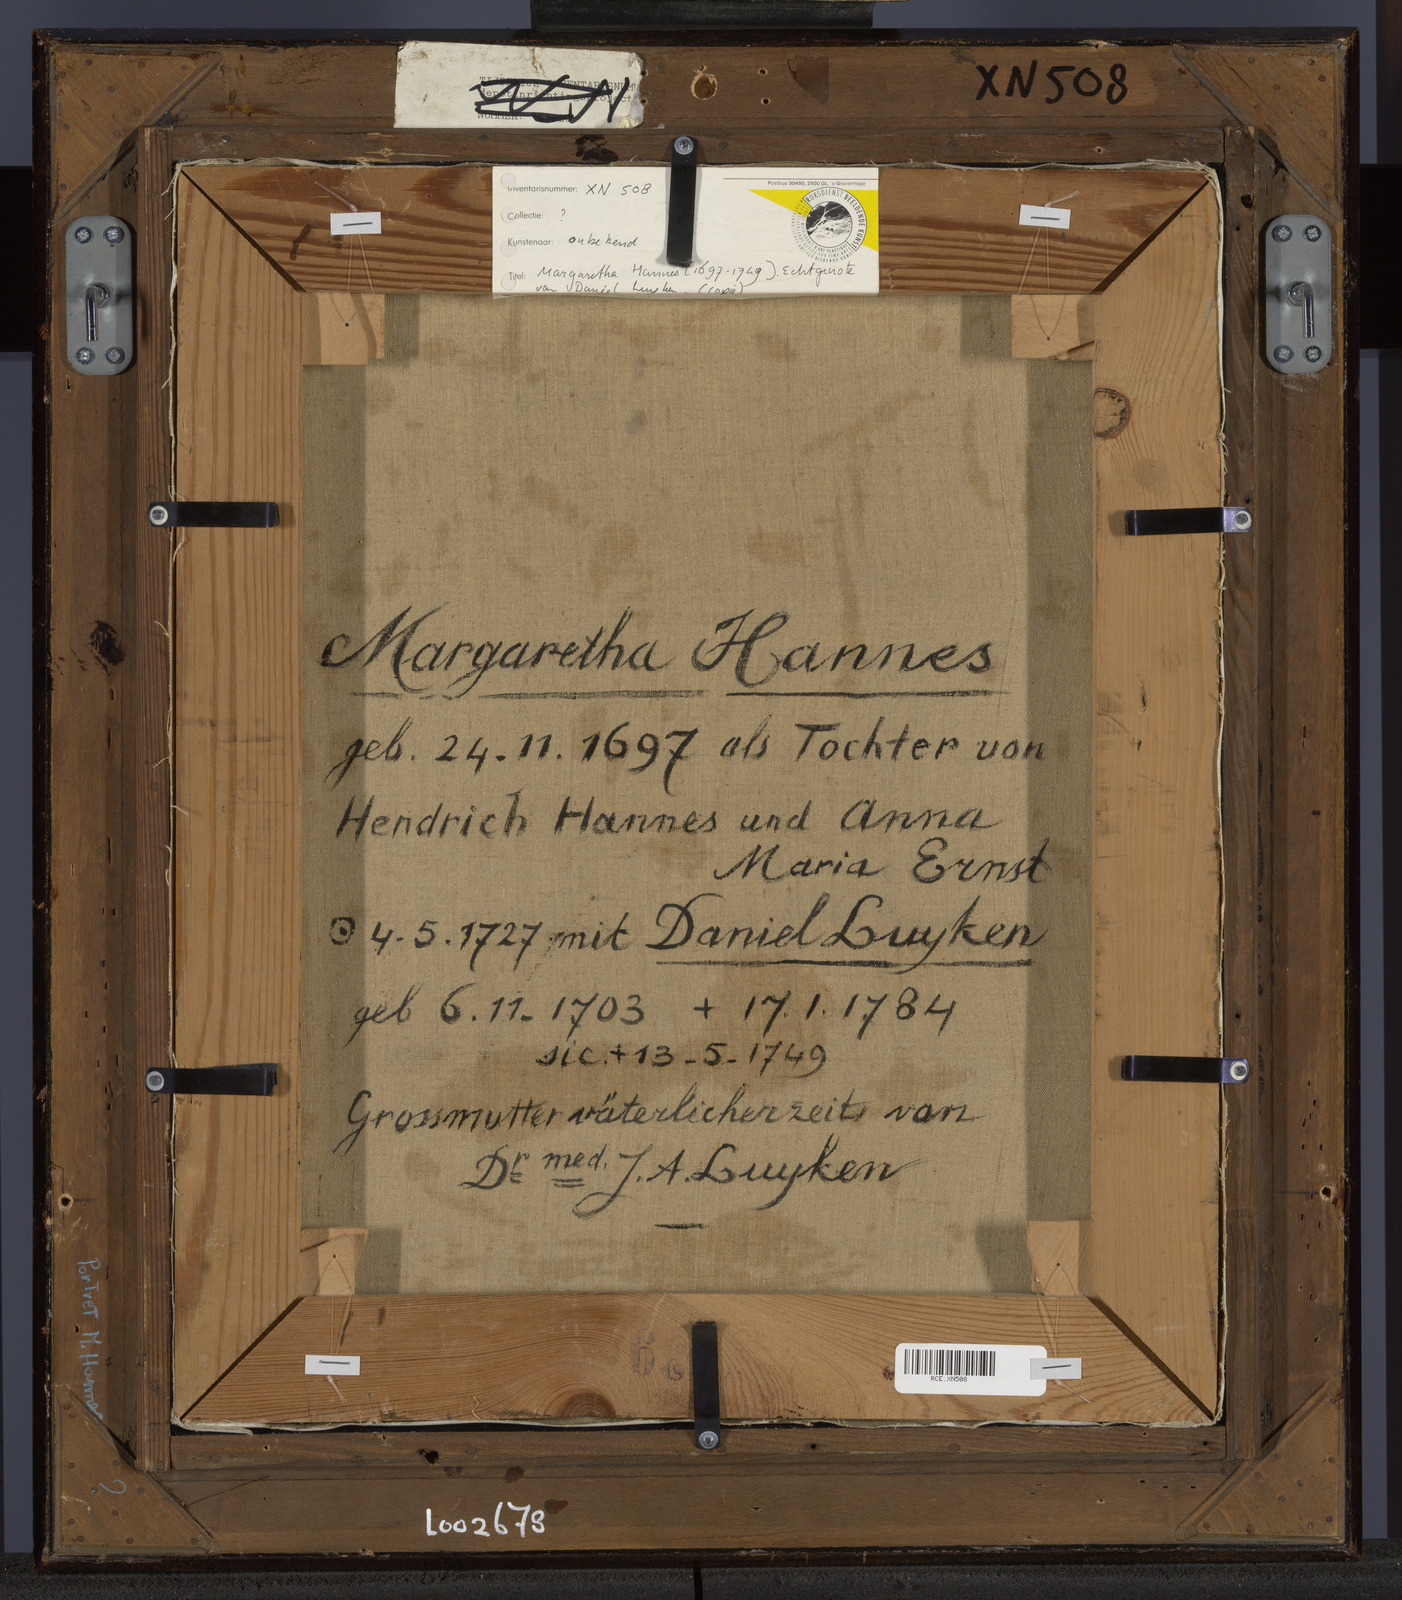 XN508
NUMMER:
Postbus 30450, 2500 GL 's-Gravenhage
Inventarisnummer: XN 508
Collectie: ?
Kunstenaar: onbekend
Titel: Margaretha Hannes (1697-1749). Echtgenote
van Daniel Luyken. (copie)
RIJKSDIENST BEELDENDE KUNST
Margaretha Hannes
geb. 24-11. 1697 als Tochter von
Hendrich Hannes und Anna
Maria Ernst
⊙ 4-5.1727 mit Daniel Luyken
geb 6.11-1703 + 17.1.1784
sic.+13-5-1749
Grossmutter väterlicherzeits von
Dr med. J.A. Luyken
RCE.XN508
Portret M. Hannes
?
L002678